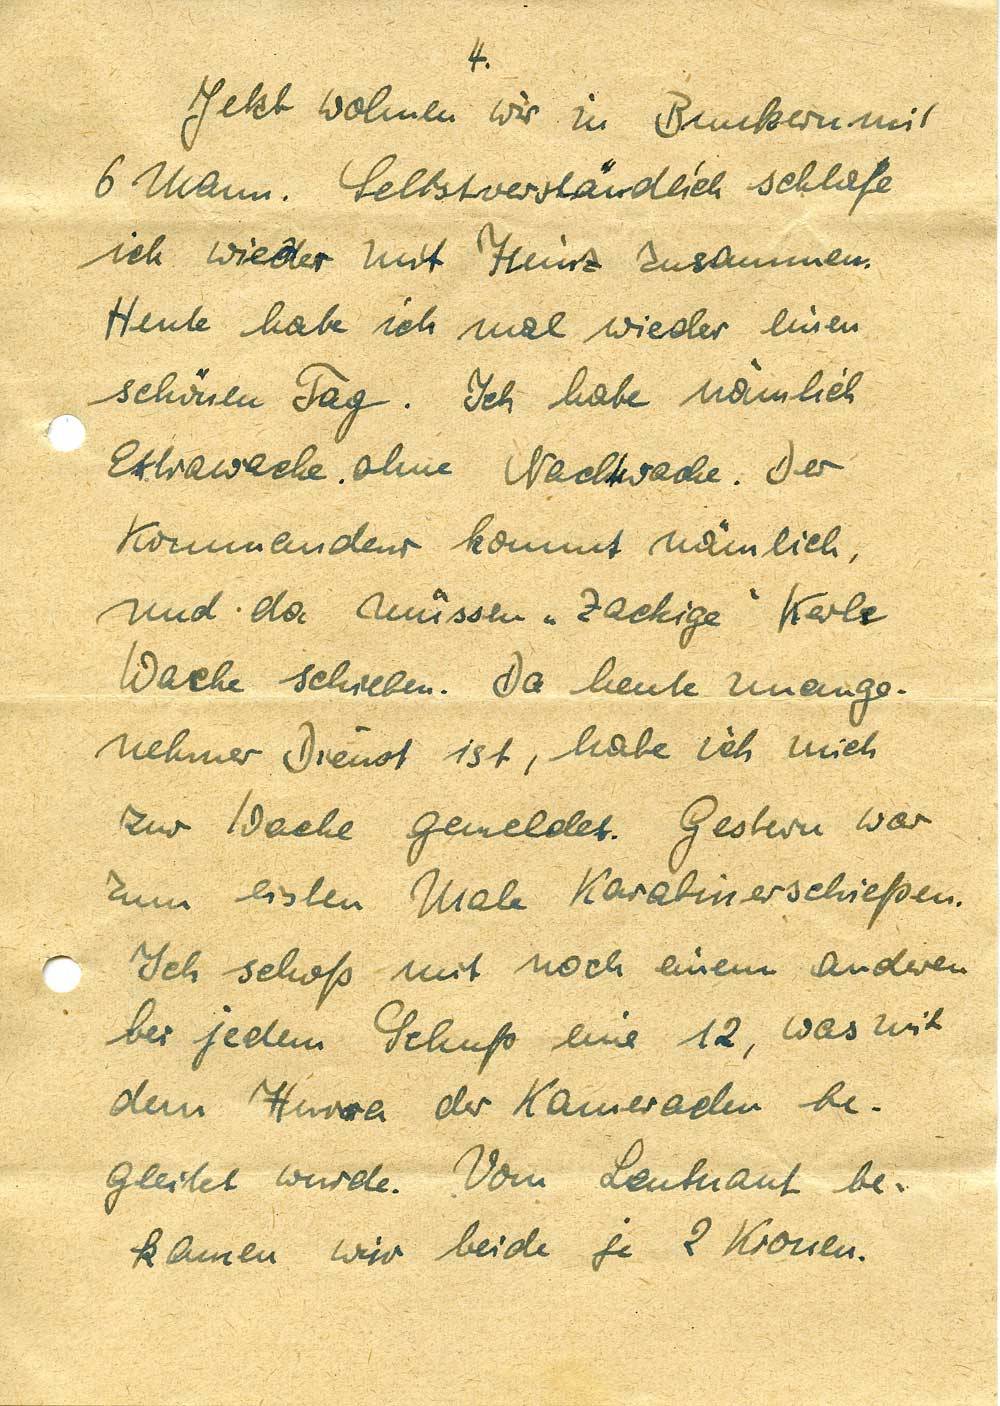 4.
Jetzt wohnen wir in Bunkern mit
6 Mann. Selbstverständlich schlafe
ich wieder mit Heinz zusammen.
Heute habe ich mal wieder einen
schönen Tag. Ich habe nämlich
Extrawache ohne Nachtwache. Der
Kommandeur kommt nämlich,
und da müssen „zackige“ Kerle
Wache schieben. Da heute unange-
nehmer Dienst ist, habe ich mich
zur Wache gemeldet. Gestern war
zum ersten Male Karabinerschießen.
Ich schoß mit noch einem anderen
bei jedem Schuß eine 12, was mit
dem Hurra der Kameraden be-
gleitet wurde. Vom Leutnant be-
kamen wir beide je 2 Kronen.